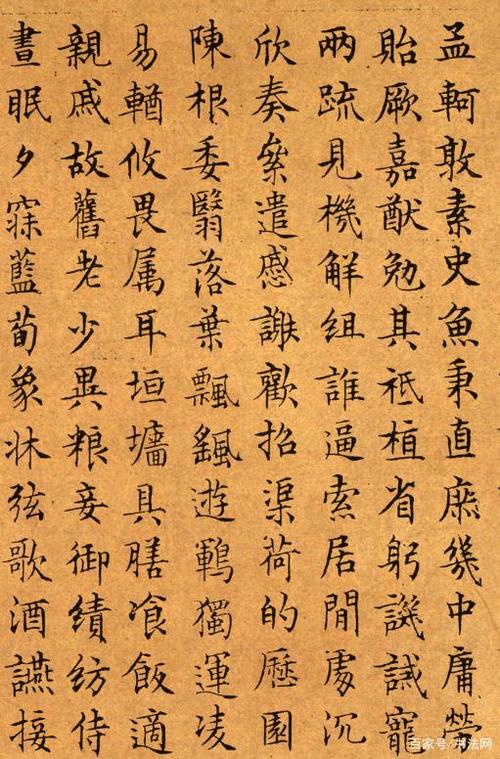 孟軻敦素史魚秉直庶幾中庸勞
貽厥嘉猷勉其祗植省躬譏誡寵
兩疏見機解組誰逼索居閒處沉
欣奏絫遣慼謝歡招渠荷的歷園
陳根委翳落葉飄颻遊鵾獨運凌
易輶攸畏属耳垣墻具膳飡飯適
親戚故舊老少異粮妾御績紡侍
晝眠夕寐藍荀象牀弦歌酒讌接
百家号/书法网